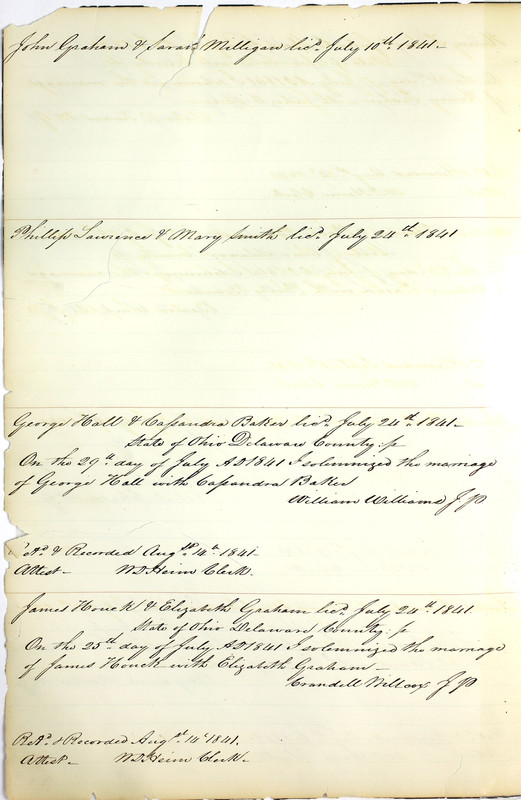 John Graham & Sarah Milligan licd. July 10th. 1841-
Phillip Lawrence & Mary Smith licd. July 24th. 1841
George Hall & Cassandra Baker licd. July 24th. 1841-
State of Ohio Delaware County: ss
On the 29th. day of July AD 1841 I solemnized the marriage
of George Hall with Cassandra Baker
William Williams J P
Retd. & Recorded Augst. 14th 1841-
Attest- W D Heim Clerk.
James Houck & Elizabeth Graham licd. July 24th. 1841.
State of Ohio Delaware County: ss
On the 25th. day of July AD 1841 I solemnized the marriage
of James Houck with Elizabeth Graham-
Crandell Willcox J P
Retd. & Recorded Augst. 14th 1841.
Attest- W D Heim Clerk-